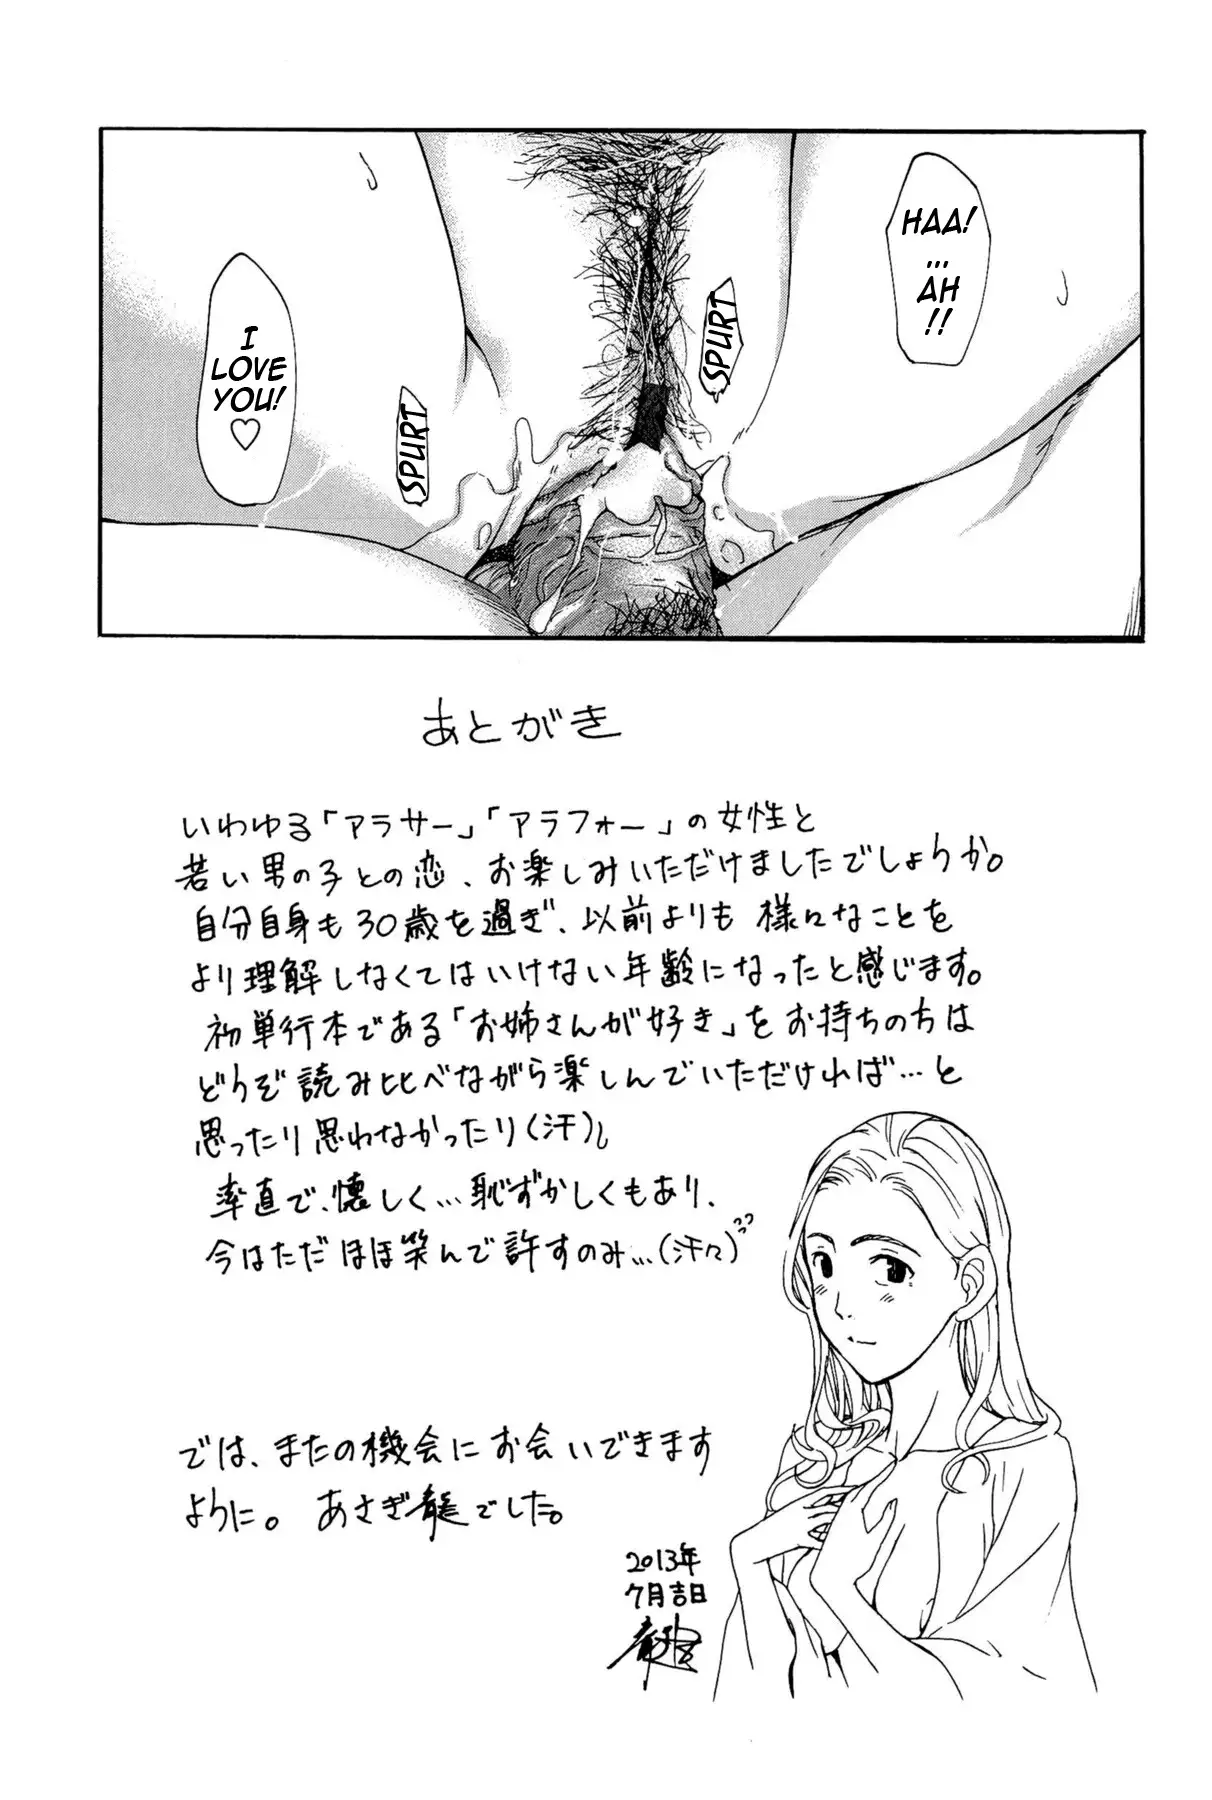 HAA!
...
AH
!!
SPURT
I
LOVE
YOU!
♡
SPURT
あとがき
いわゆる「アラサー」「アラフォー」の女性と
若い男の子との恋、お楽しみいただけましたでしょうか。
自分自身も30歳を過ぎ、以前よりも様々なことを
より理解しなくてはいけない年齢になったと感じます。
初単行本である「お姉さんが好き」をお持ちの方は
どうぞ読み比べながら楽しんでいただければ…と
思ったり思わなかったり(汗)。
率直で、懐しく…恥ずかしくもあり、
今はただほほ笑んで許すのみ…(汗々)
では、またの機会にお会いできます
ように。 あさぎ龍でした。
2013年
7月吉日